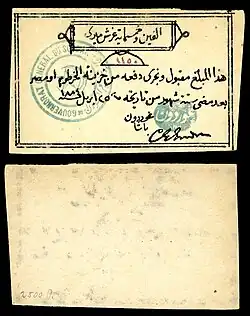 الفين وخمسماية غرش ميري
هذا المبلغ مقبول وتجري دفعه من خزينة الخرطوم او مصر
بعد مضي ستة شهور من تاريخه ٢٥ ابريل ١٨٨٤
غوردون
باشا
2500 P.